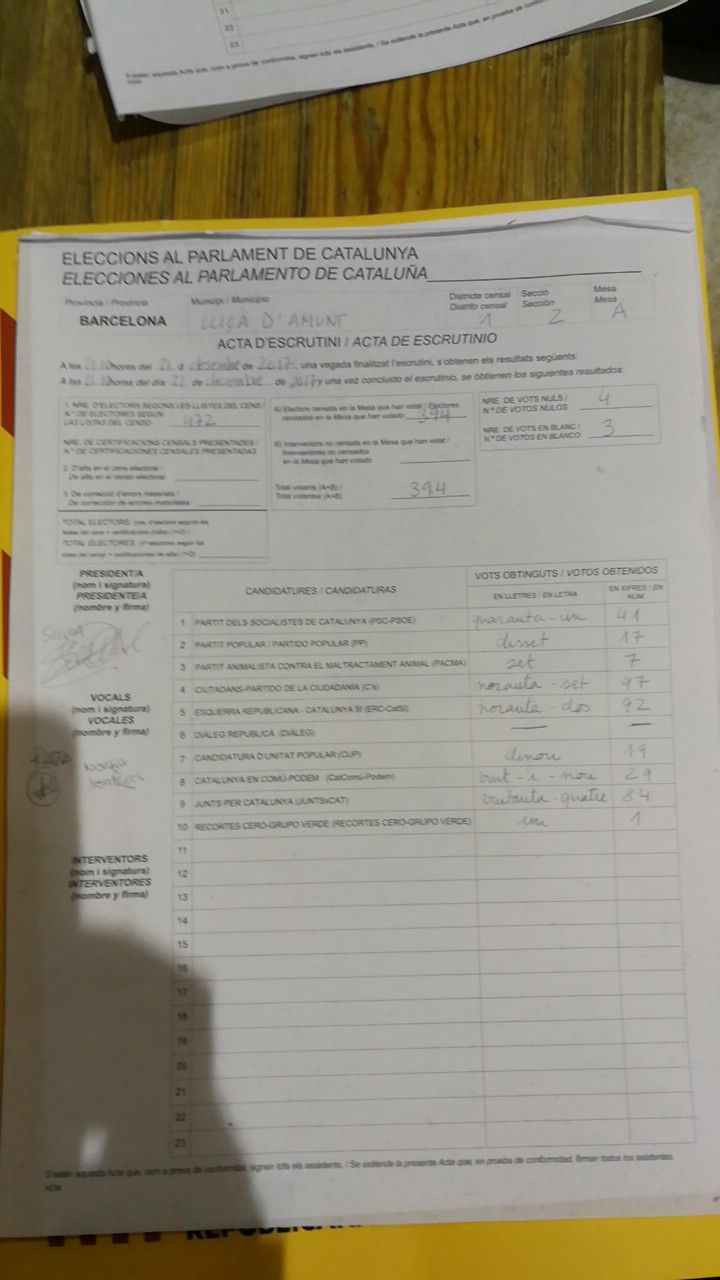 21
22
23
S'estén aquesta Acta que, com a prova de conformitat, signen tots els assistents. / Se extiende la presente Acta que, en prueba de
ELECCIONS AL PARLAMENT DE CATALUNYA
ELECCIONES AL PARLAMENTO DE CATALUÑA
Província / Provincia Municipi / Municipio Districte censal Secció Mesa
Distrito censal Sección Mesa
BARCELONA LLIÇÀ D'AMUNT 1 2 A
ACTA D'ESCRUTINI / ACTA DE ESCRUTINIO
A les 21.10 hores del 21 d desembre de 2017, una vegada finalitzat l'escrutini, s'obtenen els resultats següents:
A las 21.10 horas del día 21 de diciembre de 2017 y una vez concluido el escrutinio, se obtienen los siguientes resultados:
1. NRE. D'ELECTORS SEGONS LES LLISTES DEL CENS /
N.º DE ELECTORES SEGÚN
LAS LISTAS DEL CENSO 472
NRE. DE CERTIFICACIONS CENSALS PRESENTADES /
N.º DE CERTIFICACIONES CENSALES PRESENTADAS
2. D'alta en el cens electoral /
De alta en el censo electoral
3. De correcció d'errors materials /
De corrección de errores materiales
A) Electors censats en la Mesa que han votat / Electores
censados en la Mesa que han votado 394
B) Interventors no censats en la Mesa que han votat /
Interventores no censados
en la Mesa que han votado
Total votants (A+B) /
Total votantes (A+B) 394
NRE. DE VOTS NULS /
N.º DE VOTOS NULOS 4
NRE. DE VOTS EN BLANC /
N.º DE VOTOS EN BLANCO 3
PRESIDENT/A
(nom i signatura)
PRESIDENTE/A
(nombre y firma)
VOCALS
(nom i signatura)
VOCALES
(nombre y firma)
INTERVENTORS
(nom i signatura)
INTERVENTORES
(nombre y firma)
CANDIDATURES / CANDIDATURAS VOTS OBTINGUTS / VOTOS OBTENIDOS
EN LLETRES / EN LETRA EN XIFRES / EN NÚM
1 PARTIT DELS SOCIALISTES DE CATALUNYA (PSC-PSOE) quaranta-un 41
2 PARTIT POPULAR / PARTIDO POPULAR (PP) disset 17
3 PARTIT ANIMALISTA CONTRA EL MALTRACTAMENT ANIMAL (PACMA) set 7
4 CIUTADANS-PARTIDO DE LA CIUDADANÍA (C's) noranta-set 97
5 ESQUERRA REPUBLICANA - CATALUNYA SÍ (ERC-CatSí) noranta-dos 92
6 DIÀLEG REPUBLICÀ (DIÀLEG) — —
7 CANDIDATURA D'UNITAT POPULAR (CUP) dinou 19
8 CATALUNYA EN COMÚ-PODEM (CatComú-Podem) vint-i-nou 29
9 JUNTS PER CATALUNYA (JUNTSxCAT) vuitanta-quatre 84
10 RECORTES CERO-GRUPO VERDE (RECORTES CERO-GRUPO VERDE) un 1
11
12
13
14
15
16
17
18
19
20
21
22
23
S'estén aquesta Acta que, com a prova de conformitat, signen tots els assistents. / Se extiende la presente Acta que, en prueba de conformidad, firman todos los asistentes.